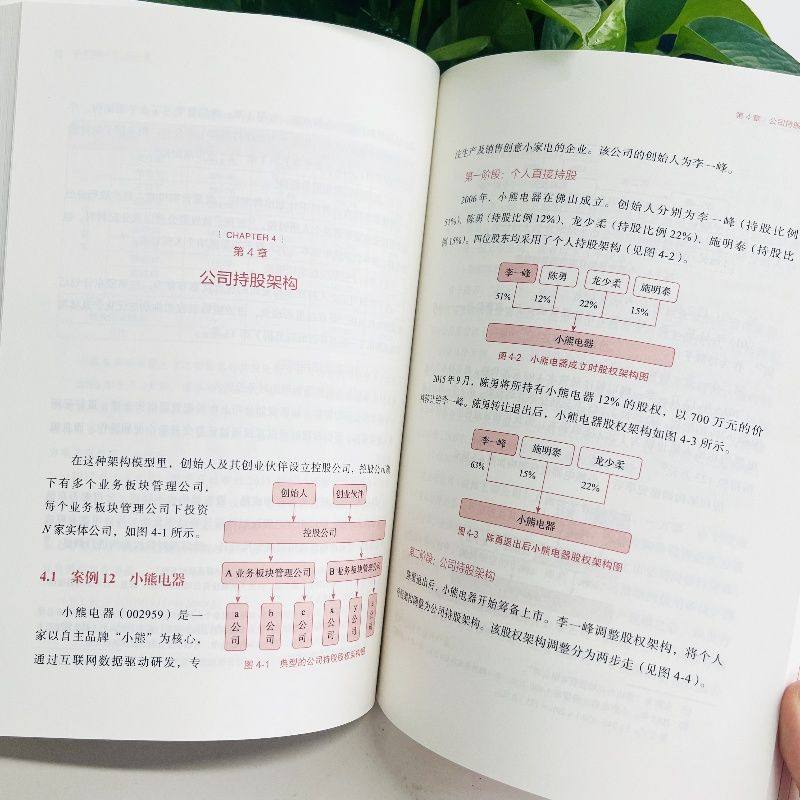 CHAPTER 4
第 4 章
公司持股架构
在这种架构模型里，创始人及其创业伙伴设立控股公司，控股公司
下有多个业务板块管理公司，
每个业务板块管理公司下投资
N 家实体公司，如图 4-1 所示。
创始人 创业伙伴
控股公司
A 业务板块管理公司 B 业务板块管理公司
a公司 b公司 c公司 x公司 y公司 z公司
图 4-1 典型的公司持股股权架构图
4.1 案例 12 小熊电器
小熊电器（002959）是一
家以自主品牌“小熊”为核心，
通过互联网数据驱动研发，专
第 4 章 公司持股
注生产及销售创意小家电的企业。该公司的创始人为李一峰。
第一阶段：个人直接持股
2006 年，小熊电器在佛山成立。创始人分别为李一峰（持股比例
51%）、陈勇（持股比例 12%）、龙少柔（持股比例 22%）、施明泰（持股比
例 15%）。四位股东均采用了个人持股架构（见图 4-2）。
李一峰 陈勇 龙少柔 施明泰
51% 12% 22% 15%
小熊电器
图 4-2 小熊电器成立时股权架构图
2015 年 9 月，陈勇将所持有小熊电器 12% 的股权，以 700 万元的价
格转让给李一峰。陈勇转让退出后，小熊电器股权架构如图 4-3 所示。
李一峰 施明泰 龙少柔
63% 15% 22%
小熊电器
图 4-3 陈勇退出后小熊电器股权架构图
第二阶段：公司持股架构
陈勇退出后，小熊电器开始筹备上市。李一峰调整股权架构，将个人
调整为公司持股架构。该股权架构调整分为两步走（见图 4-4）。